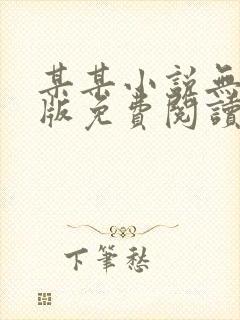 某某小說無
版免費閱讀
下筆愁